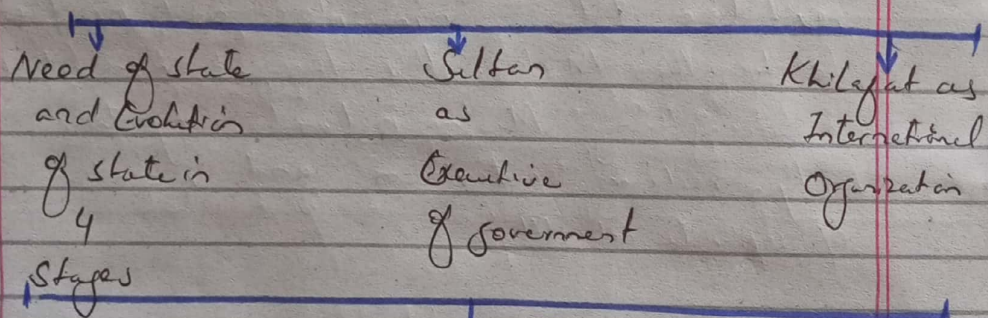 Need of state
and Evolution
of state in
4
Stages
Sultan
as
Executive
of government
Khilafat as
International
Organization